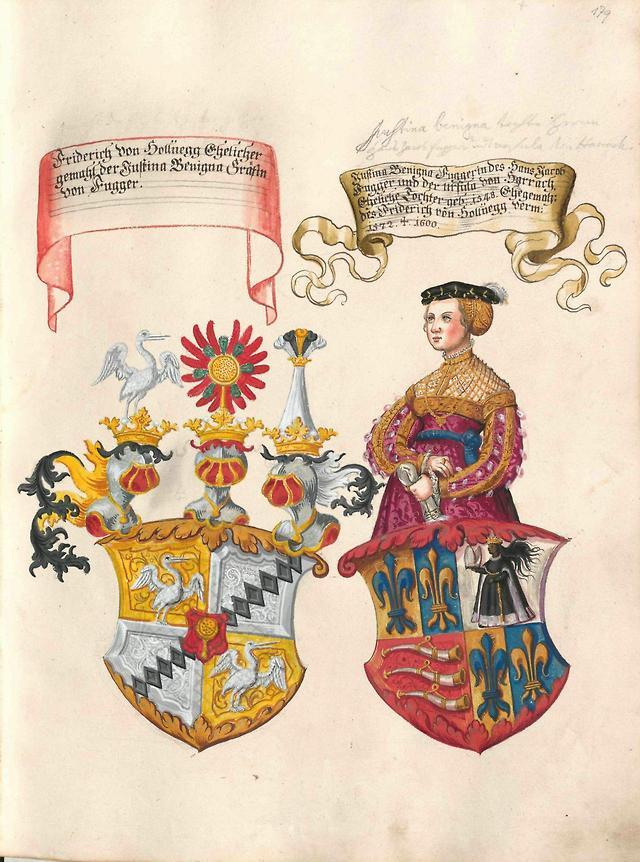 179
Friderich von Hollnegg Ehelicher
gemahl der Justina Benigna Gräfin
von Fugger.
Justina benigna
Justina Benigna Fuggerin des Hans Jacob
Fugger und der Ursula von Harrach,
Eheliche Tochter geb: 1548. Ehegemahl:
des Friderich von Hollnegg verm:
1572. † 1600.